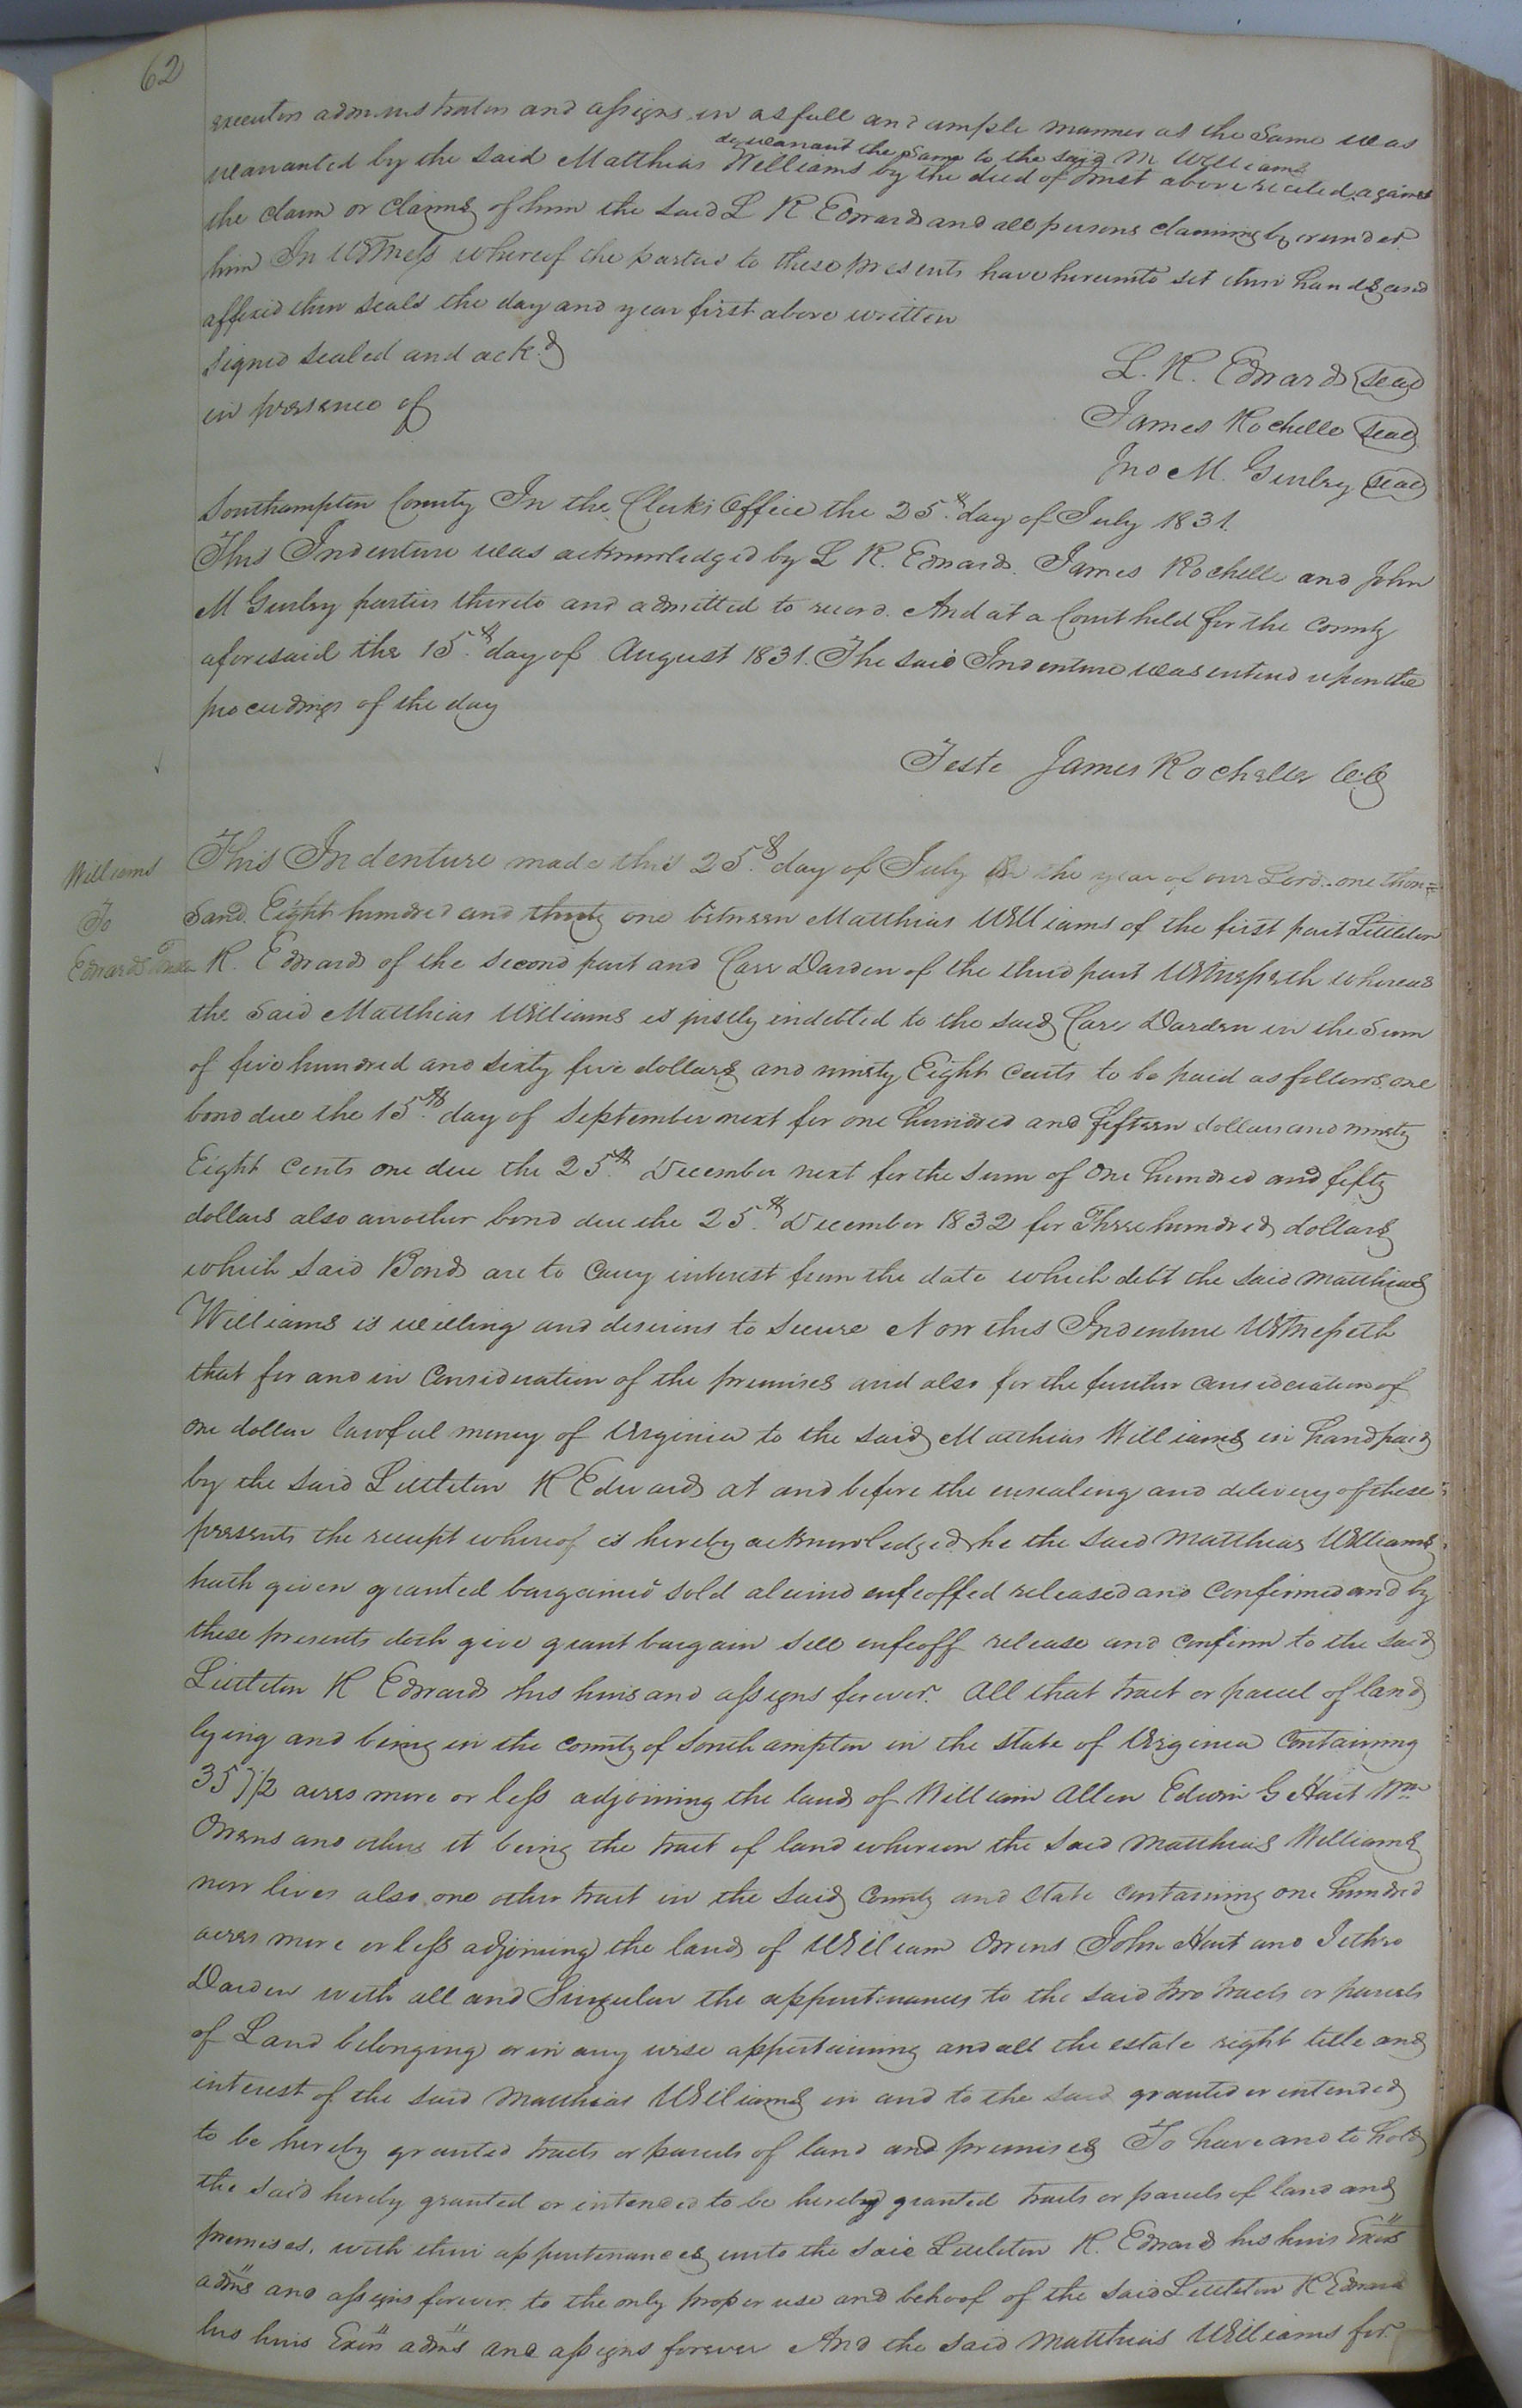 62
executors administrators and assigns in as full and ample manner as the Same was
do warrant the Same to the said M Williams
warranted by the said Matthias Williams by the deed of Trust above recited against
the claim or claims of him the said L R Edwards and all persons claiming by or under
him In Witness whereof the parties to these presents have hereunto set their hands and
affixed their seals the day and year first above written
Signed sealed and ackd
in presence of
L. R. Edwards Seal
James Rochelle Seal
Jno M. Gurley Seal
Southampton County In the Clerks Office the 25th day of July 1831.
This Indenture was acknowledged by L R. Edwards. James Rochelle and John
M Gurley parties thereto and admitted to record. And at a Court held for the County
aforesaid the 15th day of August 1831. The said Indenture was entered upon the
proceedings of the day
Teste James Rochelle C.C
Williams
To
Edwards Trustee
This Indenture made this 25th day of July in the year of our Lord one thou=
Sand. Eight hundred and thirty one between Matthias Williams of the first part Littleton
R. Edwards of the second part and Carr Darden of the third part Witnesseth whereas
the said Matthias Williams is justly indebted to the said Carr Darden in the Sum
of five hundred and sixty five dollars and ninety Eight cents to be paid as follows. one
bond due the 15th day of September next for one hundred and fifteen dollars and ninety
Eight Cents one due the 25th December next for the sum of One hundred and fifty
dollars also another bond due the 25th December 1832 for Three hundred dollars
which said Bonds are to carry interest from the date which debt the said Matthias
Williams is willing and desirous to secure Now this Indenture Witnesseth
that for and in Consideration of the premises and also for the further consideration of
one dollar lawful money of Virginia to the said Matthias Williams in hand paid
by the said Littleton R Edwards at and before the ensealing and delivery of these
presents the receipt whereof is hereby acknowledged he the said Matthias Williams
hath given granted bargained sold aliend enfeoffed released and Confirmed and by
these presents doth give grant bargain sell enfeoff release and confirm to the said
Littleton R Edwards his heirs and assigns forever. All that tract or parcel of land
lying and being in the county of Southampton in the State of Virginia Containing
357 1/2 acres more or less adjoining the lands of William Allen Edwin G Hart Wm
Owens and others it being the tract of land whereon the said Matthias Williams
now lives also one other tract in the said County and State containing one hundred
acres more or less adjoining the lands of William Owens John Hart and Jethro
Darden with all and Singular the appurtenances to the said two tracts or parcels
of Land belonging or in any wise appertaining and all the estate right title and
interest of the said Matthias Williams in and to the said granted or intended
to be hereby granted tracts or parcels of land and premises To have and to hold
the said hereby granted or intended to be hereby granted tracts or parcels of land and
premises. with their appurtenances unto the said Littleton R. Edwards his heirs Exrs
admrs and assigns forever. to the only proper use and behoof of the said Littleton R Edwards
his heirs Exrs admrs and assigns forever And the said Matthias Williams for